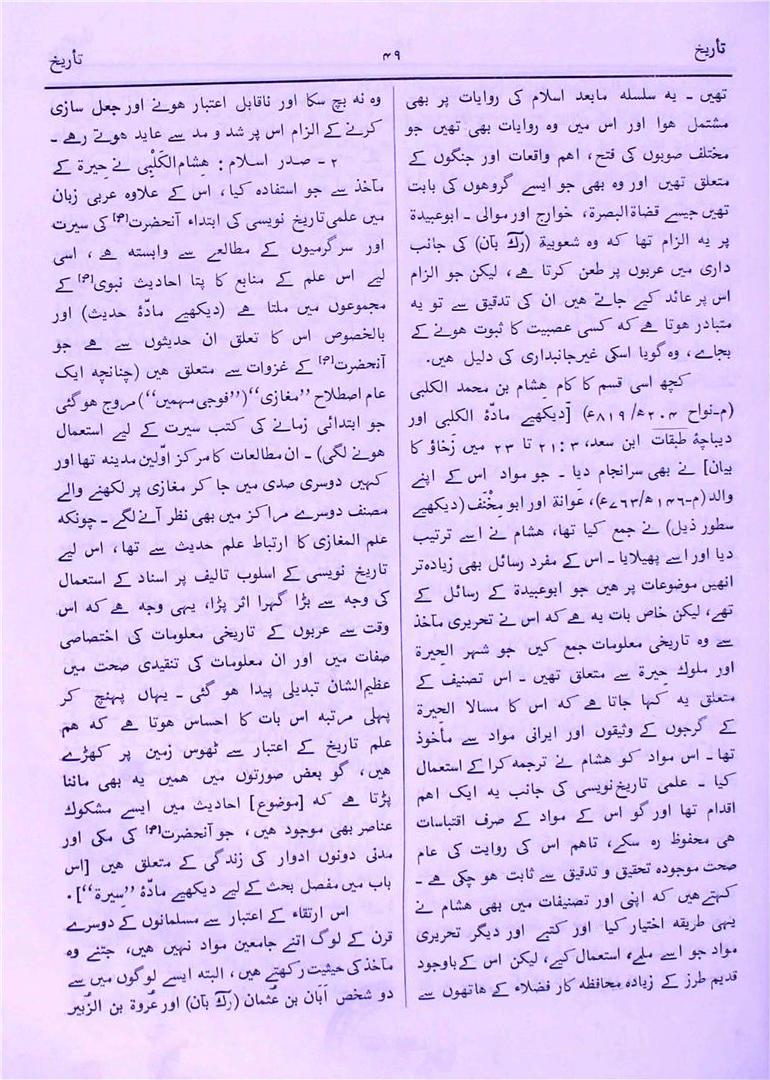 تأریخ
۴۹
تأریخ
تھیں ۔ یہ سلسلہ مابعد اسلام کی روایات پر بھی
مشتمل ہوا اور اس میں وہ روایات بھی تھیں جو
مختلف صوبوں کی فتح، اہم واقعات اور جنگوں کے
متعلق تھیں اور وہ بھی جو ایسے گروھوں کی بابت
تھیں جیسے قضاة البصرة، خوارج اور موالی ۔ ابوعبیدة
پر یہ الزام تھا کہ وہ شعوبیة (رکّ بآن) کی جانب
داری میں عربوں پر طعن کرتا ہے، لیکن جو الزام
اس پر عائد کیے جاتے ھیں ان کی تدقیق سے تو یہ
متبادر ہوتا ہے کہ کسی عصبیت کا ثبوت ہونے کے
بجاے، وہ گویا اسکی غیرجانبداری کی دلیل ھیں.
کچھ اسی قسم کا کام ہشام بن محمد الکلبی
(م-نواح ۲۰۴ھ/۸۱۹ء) [دیکھیے مادّۂ الکلبی اور
دیباچۂ طبقات ابن سعد، ۳: ۲۱ تا ۲۳ میں زخاؤ کا
بیان] نے بھی سرانجام دیا ۔ جو مواد اس کے اپنے
والد (م-۱۴۶ھ/۷۶۳ء)، عَوانة اور ابو مِخْنَف (دیکھیے
سطور ذیل) نے جمع کیا تھا، ہشام نے اسے ترتیب
دیا اور اسے پھیلایا ۔ اس کے مفرد رسائل بھی زیادہ تر
انھیں موضوعات پر ھیں جو ابوعبیدة کے رسائل کے
تھے، لیکن خاص بات یہ ہے کہ اس نے تحریری مآخذ
سے وہ تاریخی معلومات جمع کیں جو شہر الحِیرة
اور ملوک حِیرة سے متعلق تھیں ۔ اس تصنیف کے
متعلق یہ کہا جاتا ہے کہ اس کا مسالا الحِیرة
کے گرجوں کے وثیقوں اور ایرانی مواد سے مأخوذ
تھا ۔ اس مواد کو ہشام نے ترجمہ کرا کے استعمال
کیا ۔ علمی تاریخ نویسی کی جانب یہ ایک اہم
اقدام تھا اور گو اس کے مواد کے صرف اقتباسات
ھی محفوظ رہ سکے، تاہم اس کی روایت کی عام
صحت موجودہ تحقیق و تدقیق سے ثابت ہو چکی ہے ۔
کہتے ھیں کہ اپنی اور تصنیفات میں بھی ہشام نے
یہی طریقہ اختیار کیا اور کتبے اور دیگر تحریری
مواد جو اسے ملے، استعمال کیے، لیکن اس کے باوجود
قدیم طرز کے زیادہ محافظہ کار فضلاء کے ھاتھوں سے
وہ نہ بچ سکا اور ناقابل اعتبار ہونے اور جعل سازی
کرنے کے الزام اس پر شد و مد سے عاید ہوتے رھے ۔
۲ - صدر اسلام : ہِشام الکَلْبِی نے حِیرة کے
مآخذ سے جو استفادہ کیا، اس کے علاوہ عربی زبان
میں علمی تاریخ نویسی کی ابتداء آنحضرت[صؐ] کی سیرت
اور سرگرمیوں کے مطالعے سے وابستہ ہے، اسی
لیے اس علم کے منابع کا پتا احادیث نبوی[صؐ] کے
مجموعوں میں ملتا ہے (دیکھیے مادّۂ حدیث) اور
بالخصوص اس کا تعلق ان حدیثوں سے ہے جو
آنحضرت[صؐ] کے غزوات سے متعلق ھیں (چنانچہ ایک
عام اصطلاح ”مغازی“ (”فوجی مہمیں“) مروج ہو گئی
جو ابتدائی زمانے کی کتب سیرت کے لیے استعمال
ہونے لگی) ۔ ان مطالعات کا مرکز اوّلین مدینہ تھا اور
کہیں دوسری صدی میں جا کر مغازی پر لکھنے والے
مصنف دوسرے مراکز میں بھی نظر آنے لگے ۔ چونکہ
علم المغازی کا ارتباط علم حدیث سے تھا، اس لیے
تاریخ نویسی کے اسلوب تالیف پر اسناد کے استعمال
کی وجہ سے بڑا گہرا اثر پڑا، یہی وجہ ہے کہ اس
وقت سے عربوں کے تاریخی معلومات کی اختصاصی
صفات میں اور ان معلومات کی تنقیدی صحت میں
عظیم الشان تبدیلی پیدا ہو گئی ۔ یہاں پہنچ کر
پہلی مرتبہ اس بات کا احساس ہوتا ہے کہ ہم
علم تاریخ کے اعتبار سے ٹھوس زمین پر کھڑے
ھیں، گو بعض صورتوں میں ہمیں یہ بھی ماننا
پڑتا ہے کہ [موضوع] احادیث میں ایسے مشکوک
عناصر بھی موجود ھیں، جو آنحضرت[صؐ] کی مکی اور
مدنی دونوں ادوار کی زندگی کے متعلق ھیں [اس
باب میں مفصل بحث کے لیے دیکھیے مادّۂ ”سیرة“].
اس ارتقاء کے اعتبار سے مسلمانوں کے دوسرے
قرن کے لوگ اتنے جامعین مواد نہیں ھیں، جتنے وہ
مآخذ کی حیثیت رکھتے ھیں، البتہ ایسے لوگوں میں سے
دو شخص اَبَان بن عُثمان (رکّ بآن) اور عُروة بن الزُّبیر